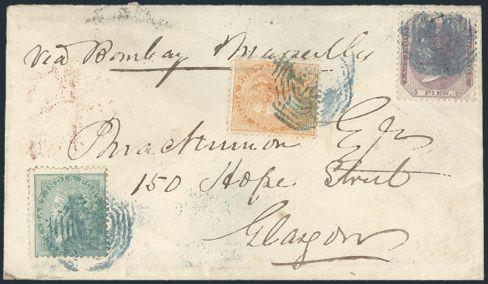 via Bombay Marseilles
PIES
EAST INDIA
Mackinnon
150 Hope Street
Glasgow